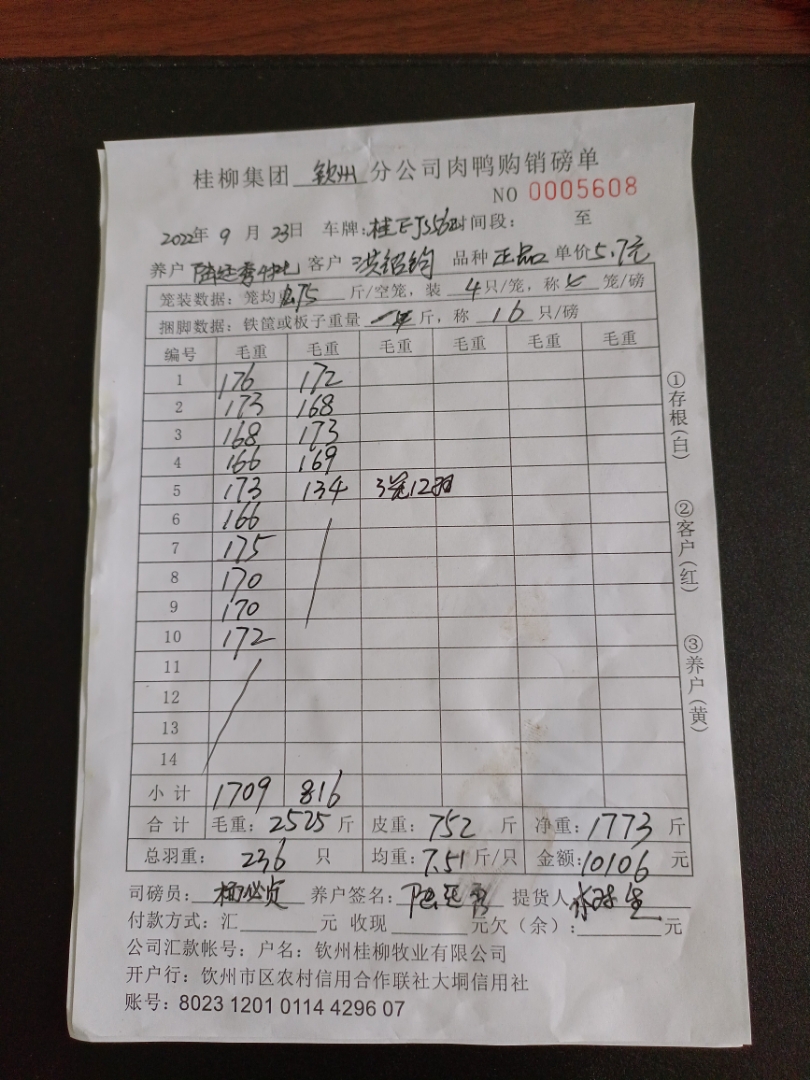 桂柳集团 钦州 分公司肉鸭购销磅单
NO 0005608
2022年 9 月 23日 车牌: 时间段: 至
养户 客户 洪绍钧 品种 正品 单价5.7元
笼装数据: 笼均 斤/空笼, 装 4只/笼, 称 笼/磅
捆脚数据: 铁筐或板子重量 斤, 称 16 只/磅
编号 毛重 毛重 毛重 毛重 毛重 毛重
1 176 172
2 173 168
3 168 173
4 166 169
5 173 134 3笼12羽
6 166
7 175
8 170
9 170
10 172
11
12
13
14
小计 1709 816
合计 毛重: 2525 斤 皮重: 752 斤 净重: 1773 斤
总羽重: 236 只 均重: 7.51 斤/只 金额: 10106 元
司磅员: 养户签名: 提货人
付款方式: 汇 元 收现 元欠(余): 元
公司汇款帐号: 户名: 钦州桂柳牧业有限公司
开户行: 钦州市区农村信用合作联社大垌信用社
账号: 8023 1201 0114 4296 07
①存根(白)
②客户(红)
③养户(黄)